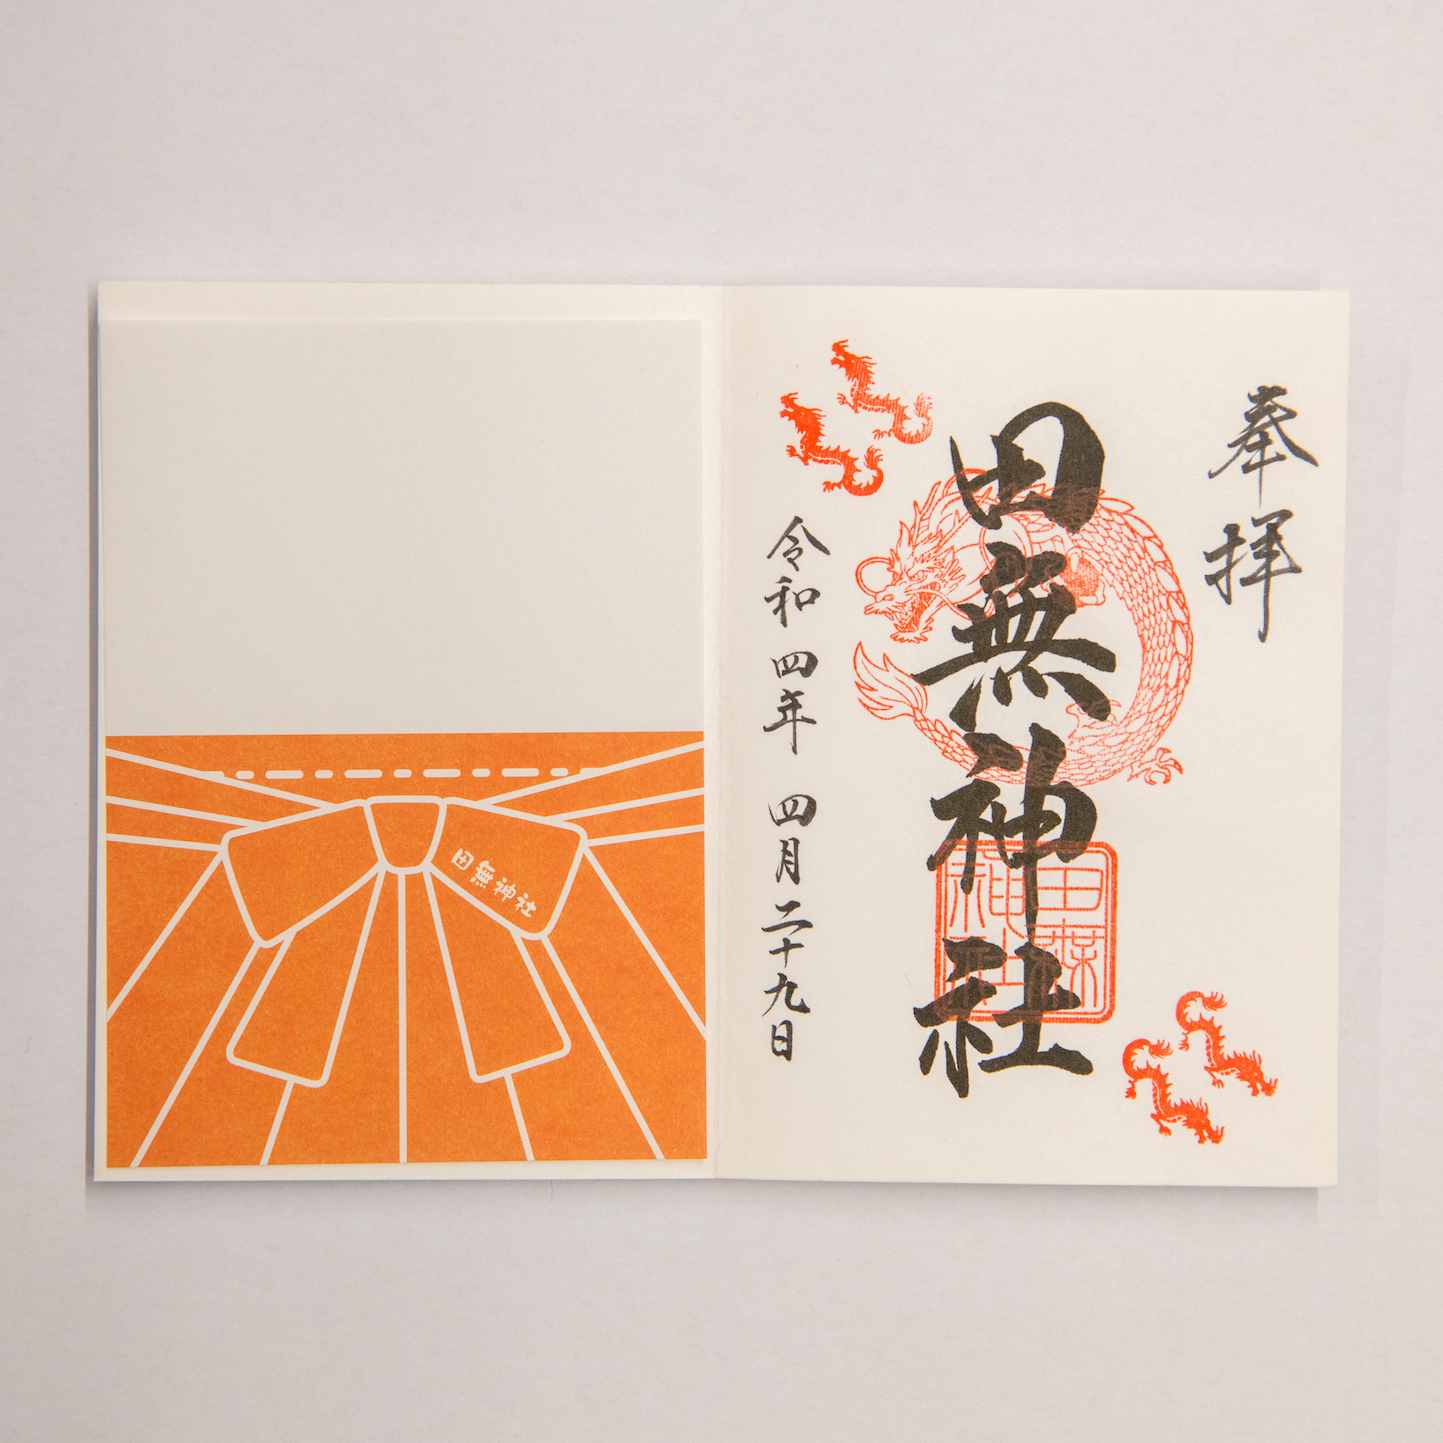 奉拝
田無神社
田無神社
令和四年四月二十九日
田無神社